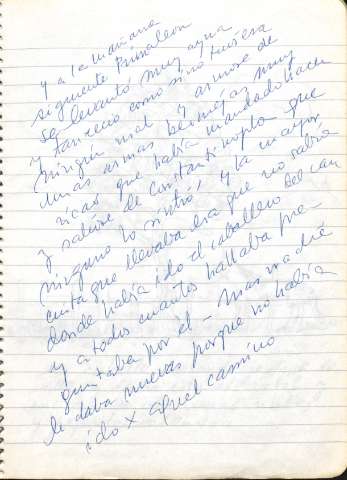 y a la mañana
siguiente Primaleon
se levantó muy ayna
y tan recio como si no tuviera
ningún mal y armose de
unas armas bermejas muy
ricas que había mandado hacer
y saliose de Constantinopla que
ninguno lo sintió, y la mayor
cuita que llevaba era que no sabía
donde había ido el caballero del can
y a todos cuantos hallaba pre-
guntaba por él - mas nadie
le daba nuevas porque no había
ido x aquel camino